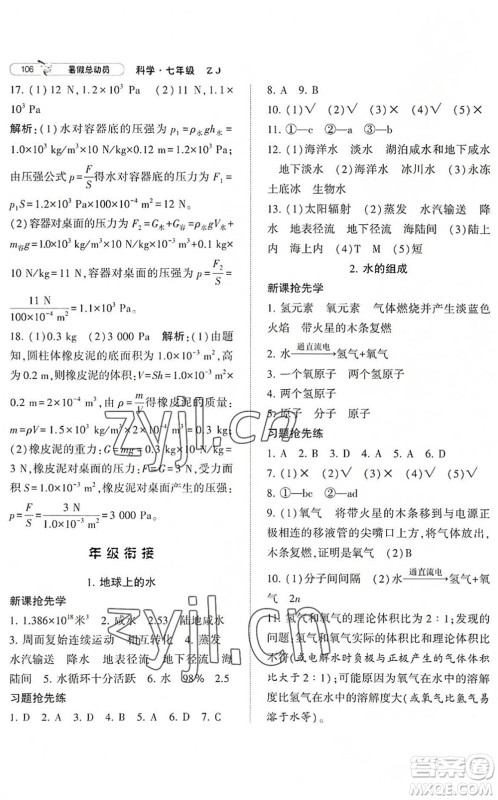 106 暑假总动员 科学·七年级 ZJ
17. (1) 12 N, 1.2×10³ Pa (2) 11 N, 1.1×10³ Pa
解析: (1) 水对容器底的压强为 p₁=ρ水gh水=
1.0×10³ kg/m³×10 N/kg×0.12 m=1.2×10³ Pa,
由压强公式 p=F/S 得水对容器底部的压力为 F₁=
p₁S=1.0×10³ kg/m³×10 N/kg×
(2) 容器对桌面的压力为 F₂=G水+G容=ρ水gV水+
m容g=1.0×10³ kg/m³×10 N/kg×
10 N/kg=11 N, 容器对桌面的压强为 p₂=
11 N/100×10⁻⁴ m²=1.1×10³ Pa。
18. (1) 0.3 kg (2) 3 000 Pa 解析: (1) 由题
知, 圆柱体橡皮泥的底面积为 1.0×10⁻³ m², 高
为 0.2 m, 则橡皮泥的体积: V=Sh=1.0×10⁻³ m²×
0.2 m, 由 ρ=m/V 得橡皮泥的质量为:
m=ρV=1.5×10³ kg/m³×
(2) 橡皮泥的重力为: G=mg=
N/kg=3 N, 橡皮泥对桌面的压力 F=G=3 N, 受力面
积 S=1.0×10⁻³ m², 橡皮泥对桌面产生的压强:
p=F/S=3 N/1.0×10⁻³ m²=3 000 Pa。
年级衔接
1. 地球上的水
新课抢先学
1. 1.386×10¹⁸米³ 2. 咸水 2.53 陆地咸水
3. 周而复始连续运动 相互转化 4. 蒸发
水汽输送 降水 地表径流 地下径流 海
陆间 5. 水循环十分活跃 6. 水 98% 2.5
习题抢先练
1. D 2. D 3. A 4. C 5. D 6. D 7. C
8. A 9. B
10. (1)√ (2)√ (3)× (4)√ (5)√
11. ①—c ②—a ③—b
12. (1) 海洋水 淡水 湖泊咸水和地下咸水
地下淡水 (2) 海洋水 冰川水 (3) 永冻
土底冰 生物水
13. (1) 太阳辐射 (2) 蒸发 水汽输送 降
水 地表径流 地下径流 海陆间 (3) 陆
上 海上内 (4) T (5) M (5) 短
2. 水的组成
新课抢先学
1. 氢元素 氧元素 气体燃烧并产生淡蓝色
火焰 带火星的木条复燃
2. 水 通直流电→ 氢气+氧气
3. 一个氧原子 两个氢原子
4. 两个氢原子
5. 原子 分子 原子
习题抢先练
1. A 2. B 3. D 4. A 5. A 6. D
7. (1)× (2)√ (3)√ (4)×
8. ①—b ②—ad
9. (1) 氧气 将带火星的木条移到与电源正
极相连的移液管的尖嘴口上, 打开活塞, 木条
复燃, 木条复燃。
10. (1) 分子间间隔 (2) 水 通直流电→ 氢气+氧
气 2n
11. 氢气和氧气的理论体积比为 2∶1; 可发现的
问题: 氢气和氧气实际的体积比与理论体积比
不符(或电解水时负极与正极产生的气体体积
比大于 2∶1)。可能原因: 氧气在水中的溶解
度大于氢气在水中的溶解度(或少量氧气溶
于水中)。
zyjl.cn
zyjl.cn